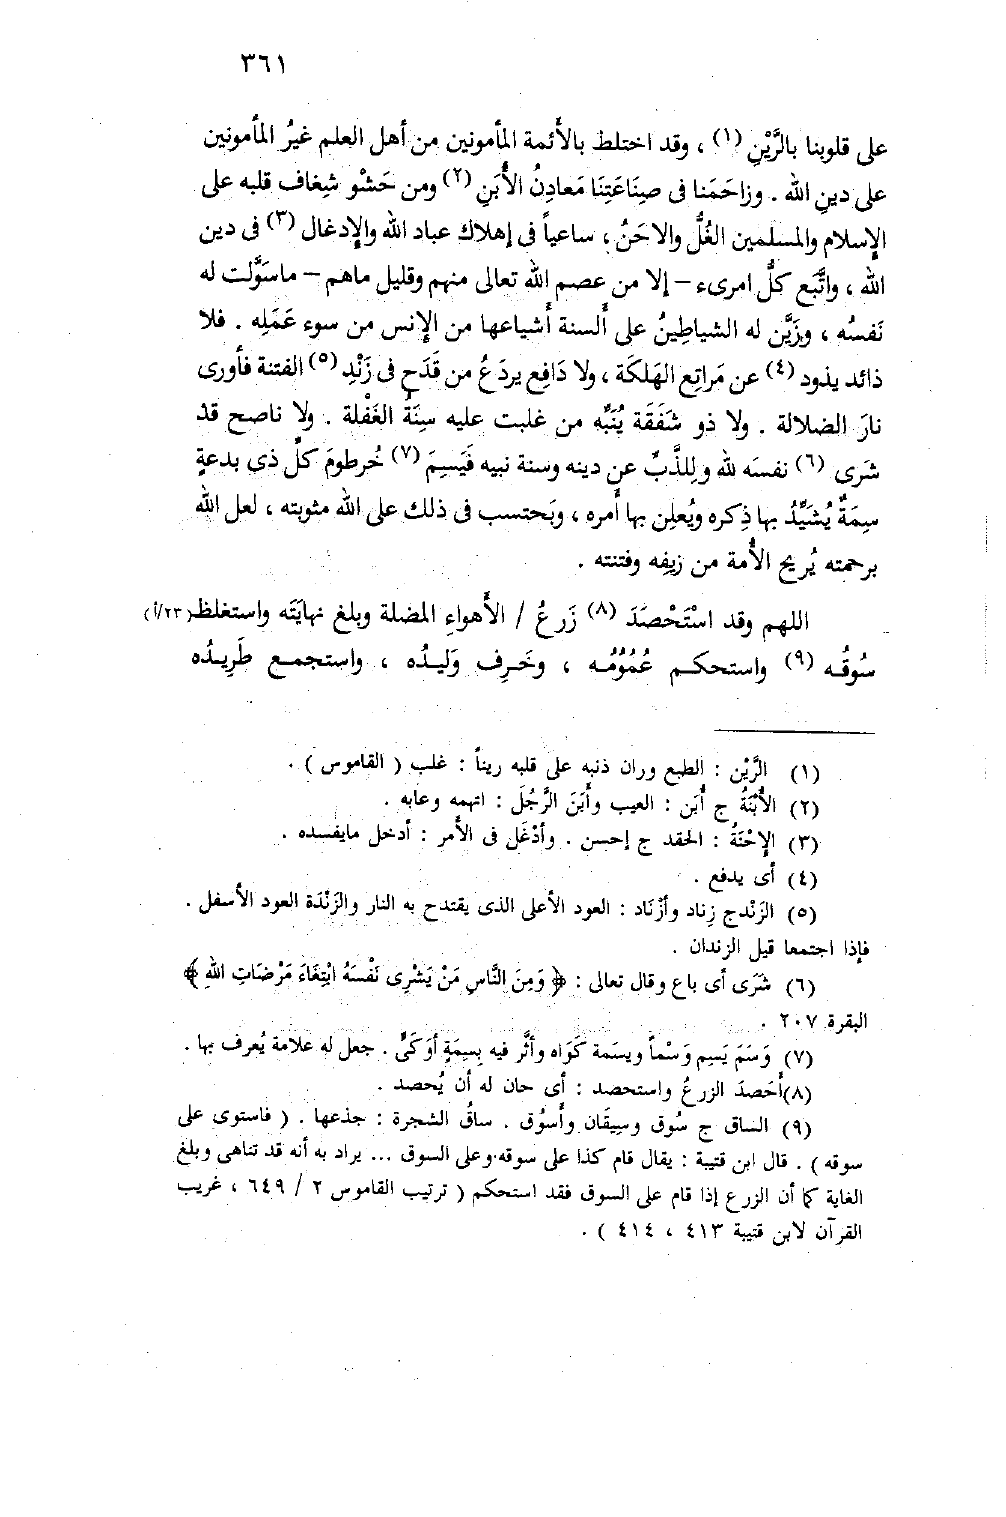 ٣٦١
على قلوبنا بالرَّيْنِ (١) ، وقد اختلط بالأَئمة المأمونين من أهل العلم غيرُ المأمونين
على دينِ الله . وزاحَمَنا فى صِنَاعَتِنَا مَعادِنُ الأُبَنِ (٢) ومن حَشْو شِغاف قلبه على
الإسلام والمسلمين الغُلُّ والاحَنُ ، ساعياً فى إهلاك عباد الله والإدغال (٣) فى دين
الله ، واتَّبَع كلُّ امرىء – إلا من عصم الله تعالى منهم وقليل ماهم – ماسَوَّلت له
نَفسُه ، وزَيَّن له الشياطِينُ على ألسنة أشياعها من الإنس من سوء عَمَلِه . فلا
ذائد يذود (٤) عن مَراتِع الهَلكَة ، ولا دَافِع يردَعُ من قَدَح فى زَنْدِ (٥) الفتنة فأورى
نارَ الضلالة . ولا ذو شَفَقَة يُنَبِّه من غلبت عليه سِنَةُ الغَفْلة . ولا ناصح قد
شَرى (٦) نفسَه لله ولِلذَّبِّ عن دينه وسنة نبيه فَيَسِمَ (٧) خُرطومَ كلِّ ذى بدعةٍ
سِمَةٌ يُشَيِّدُ بها ذِكره ويُعلِن بها أمره ، ويَحتسب فى ذلك على الله مثوبته ، لعل الله
برحمته يُريح الأُمة من زيفِه وفتنته .
اللهم وقد اسْتَحْصَدَ (٨) زَرعُ / الأَهواءِ المضلة وبلغ نهايَتَه واستغلظ (٢٣/أ)
سُوقُه (٩) واستحكم عُمُوُمُه ، وخَرِف وَليدُه ، واستجمع طَرِيدُه
(١) الرَّيْن : الطبع وران ذنبه على قلبه ريناً : غلب ( القاموس ) .
(٢) الأُبْنَةُ ج أُبَن : العيب وأَبَنَ الرَّجُلَ : اتهمه وعابه .
(٣) الإِحْنَةُ : الحقد ج إحسن . وأدْغَل فى الأَمر : أدخل مايفسده .
(٤) أى يدفع .
(٥) الزَنْدج زِناد وأزْنَاد : العود الأعلى الذى يقتدح به النار والزَنْدَة العود الأسفل .
فإذا اجتمعا قيل الزندان .
(٦) شَرَى أى باع وقال تعالى : ﴿ وَمِنَ النَّاسِ مَنْ يَشْرِى نَفْسَهُ ابْتِغَاءَ مَرْضَاتِ اللهِ ﴾
البقرة ٢٠٧ .
(٧) وَسَمَ يَسِم وَسْماً ويسمة كَوَاه وأثَّر فيه بِسِمَةٍ أوكَىٍّ . جعل له علامة يُعرف بها .
(٨)أَحَصدَ الزرعُ واستحصد : أى حان له أن يُحصد .
(٩) الساق ج سُوق وسِيقَان وأَسوُق . ساقُ الشجرة : جذعها . ( فاستوى على
سوقه ) . قال ابن قتيبة : يقال قام كذا على سوقه.وعلى السوق ... يراد به أنه قد تناهى وبلغ
الغاية كما أن الزرع إذا قام على السوق فقد استحكم ( ترتيب القاموس ٢ / ٦٤٩ ، غريب
القرآن لابن قتيبة ٤١٣ ، ٤١٤ ) .